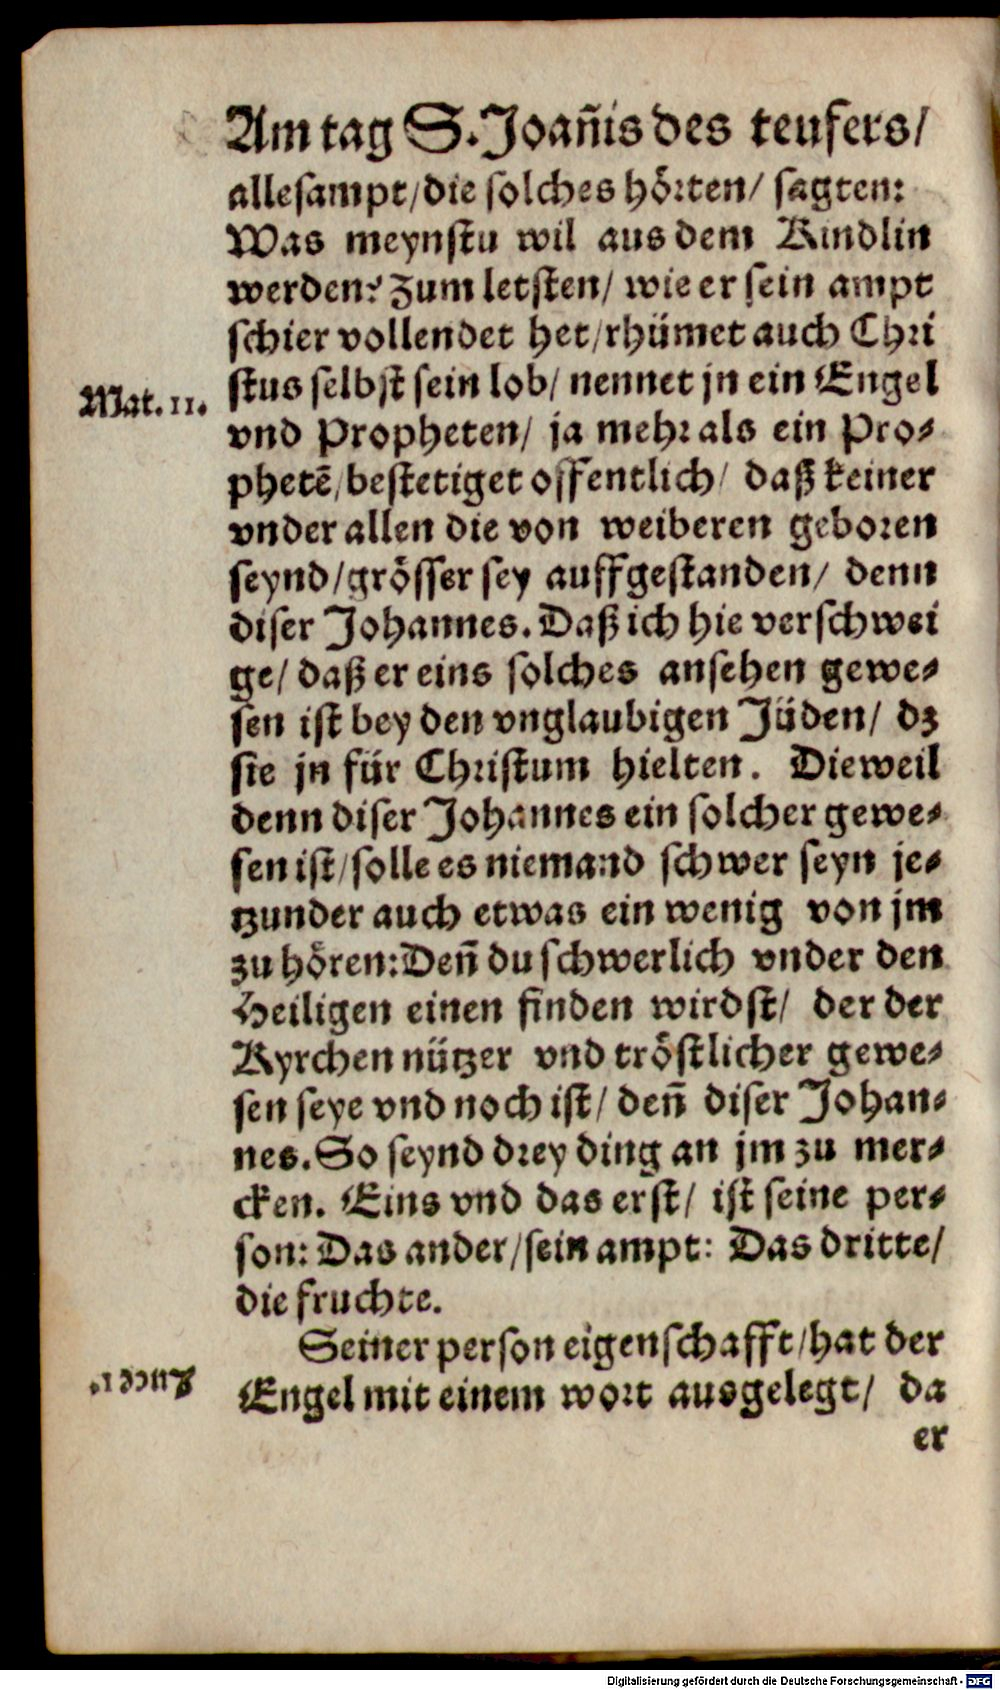 Am tag S. Joañis des teufers/
allesampt/die solches hörten/ sagten:
Was meynstu wil aus dem Kindlin
werden? Zum letsten/ wie er sein ampt
schier vollendet het/rhümet auch Chri
stus selbst sein lob/ nennet jn ein Engel
Mat. 11.
vnd Propheten/ ja mehr als ein Pro-
phetē/bestetiget offentlich/ daß keiner
vnder allen die von weiberen geboren
seynd/grösser sey auffgestanden/ denn
diser Johannes. Daß ich hie verschwei
ge/ daß er eins solches ansehen gewe-
sen ist bey den vnglaubigen Jüden/ dz
sie jn für Christum hielten. Dieweil
denn diser Johannes ein solcher gewe-
sen ist/solle es niemand schwer seyn je-
tzunder auch etwas ein wenig von jm
zu hören: Deñ du schwerlich vnder den
Heiligen einen finden wirdst/ der der
Kyrchen nützer vnd tröstlicher gewe-
sen seye vnd noch ist/ deñ diser Johan-
nes. So seynd drey ding an jm zu mer-
cken. Eins vnd das erst/ ist seine per-
son: Das ander/sein ampt: Das dritte/
die fruchte.
Seiner person eigenschafft/hat der
Lucc 1.
Engel mit einem wort ausgelegt/ da
er
Digitalisierung gefördert durch die Deutsche Forschungsgemeinschaft - DFG